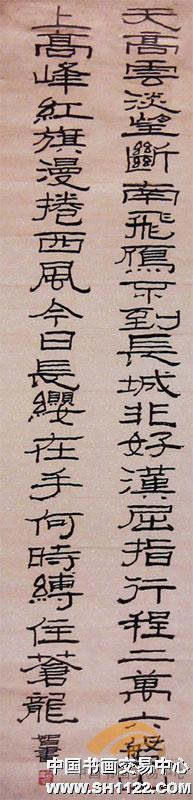 天高雲淡望斷南飛鴈不到長城非好漢屈指行程二萬六盤
上高峰紅旗漫捲西風今日長纓在手何時縛住蒼龍
中国书画交易中心
www.SH1122.com